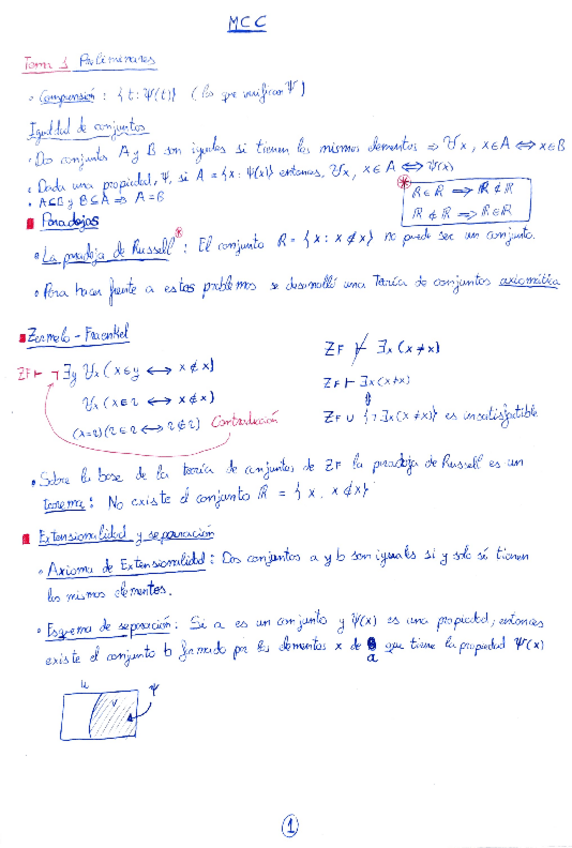 MCC
Tema 1 Preliminares
• Comprensión : { t : Ψ(t)} (los que verifican Ψ)
Igualdad de conjuntos
• Dos conjuntos A y B son iguales si tienen los mismos elementos ⇒ ∀x, x∈A ⇔ x∈B
• Dada una propiedad, Ψ, si A = {x : Ψ(x)} entonces, ∀x, x∈A ⇔ Ψ(x)
• A⊆B y B⊆A ⇒ A=B
* R∈R ⇒ R∉R
R∉R ⇒ R∈R
Paradojas
• La paradoja de Russell* : El conjunto R = { x : x∉x} no puede ser un conjunto.
• Para hacer frente a estos problemas se desarrolló una Teoría de conjuntos axiomática
Zermelo - Fraenkel
ZF ⊢ ¬∃y ∀x (x∈y ↔ x∉x)
∀x (x∈z ↔ x∉x)
(x=z) (z∈z ↔ z∉z) Contradicción
ZF ⊬ ∃x (x≠x)
ZF ⊢ ∃x (x≠x)
⇕
ZF ∪ {¬∃x (x≠x)} es insatisfactible
• Sobre la base de la teoría de conjuntos de ZF la paradoja de Russell es un
teorema : No existe el conjunto R = { x. x∉x}
Extensionalidad y separación
• Axioma de Extensionalidad : Dos conjuntos a y b son iguales si y solo si tienen
los mismos elementos.
• Esquema de separación : Si a es un conjunto y Ψ(x) es una propiedad, entonces
existe el conjunto b formado por los elementos x de a que tiene la propiedad Ψ(x)
u
v
Ψ
1